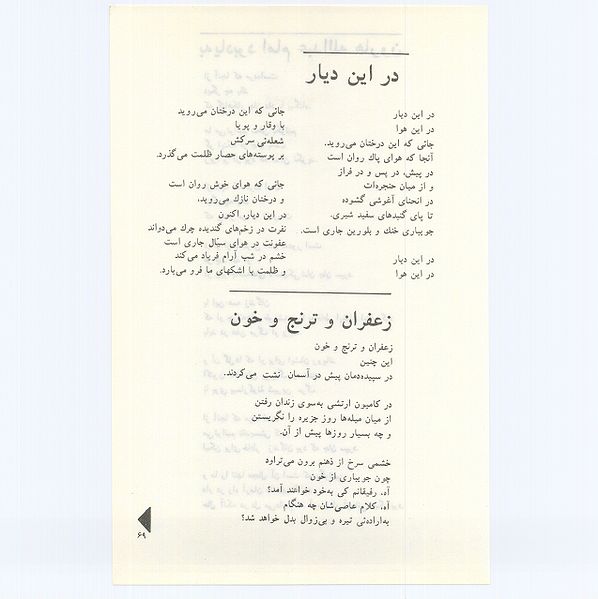 در این دیار
در این دیار
در این هوا
جائی که این درختان می‌روید.
آنجا که هوای پاك روان است
در پیش، در پس و در فراز
و از میان حنجره‌ات
در انحنای آغوشی گشوده
تا پای گنبدهای سفید شیری.
جویباری خنك و بلورین جاری است.
در این دیار
در این هوا
جائی که این درختان می‌روید
با وقار و پویا
شعله‌ئی سرکش
بر پوسته‌های حصار ظلمت می‌گذرد.
جائی که هوای خوش روان است
و درختان نازك می‌روید،
در این دیار، اکنون
نفرت در زخم‌های گندیده چرك می‌دواند
عفونت در هوای سیّال جاری است
خشم در شب آرام فریاد می‌کند
و ظلمت با اشکهای ما فرو می‌بارد.
زعفران و ترنج و خون
زعفران و ترنج و خون
این چنین
در سپیده‌دمان پیش در آسمان نشت می‌کردند.
در کامیون ارتشی به‌سوی زندان رفتن
از میان میله‌ها روز جزیره را نگریستن
و چه بسیار روزها پیش از آن.
خشمی سرخ از ذهنم برون می‌تراود
چون جویباری از خون
آه، رفیقانم کی به‌خود خواهند آمد؟
آه، کلام عاصی‌شان چه هنگام
به‌اراده‌ئی تیره و بی‌زوال بدل خواهد شد؟
۶۹